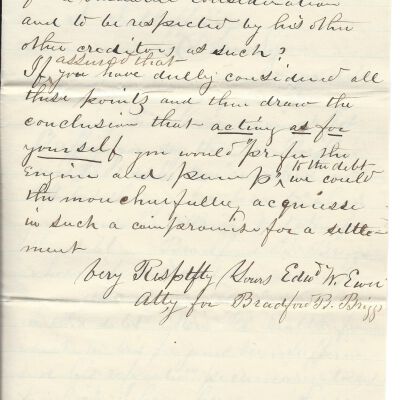 and to be respected by his other
other creditors as such?
assured that
If you have dully considered all
these points and then draw the
conclusion that acting as for
yourself you would prefer the
to the debt
Engine and pump, we could
the more cheerfully acquiesse
in such a compromise for a settle-
ment
Very Respctfly Yours Edwd W.
Atty for Bradford B. Briggs